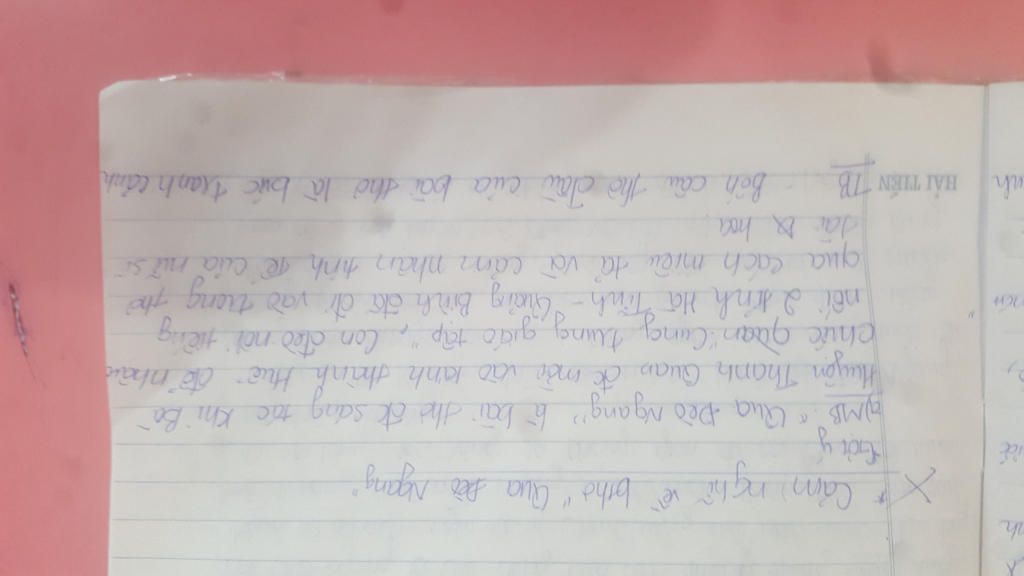 * Cảm nghĩ về bthơ "Qua Đèo Ngang"
Gợi ý
a) MB: "Qua Đèo Ngang" là bài thơ đc sáng tác khi Bà
Huyện Thanh Quan đc mời vào kinh thành Huế để nhận
chức quan "Cung trung giáo tập", Con đèo nổi tiếng
nối 2 tỉnh Hà Tĩnh - Quảng Bình đã đi vào trong thơ
qua cách miêu tả và cảm nhận tinh tế của nữ sĩ
tài hoa
TB - Bốn câu thơ đầu của bài thơ là bức tranh cảnh
HẢI TIẾN